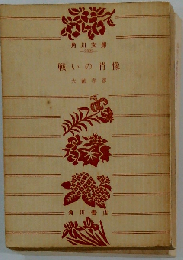 角川文庫
戦いの肖像
角川書店